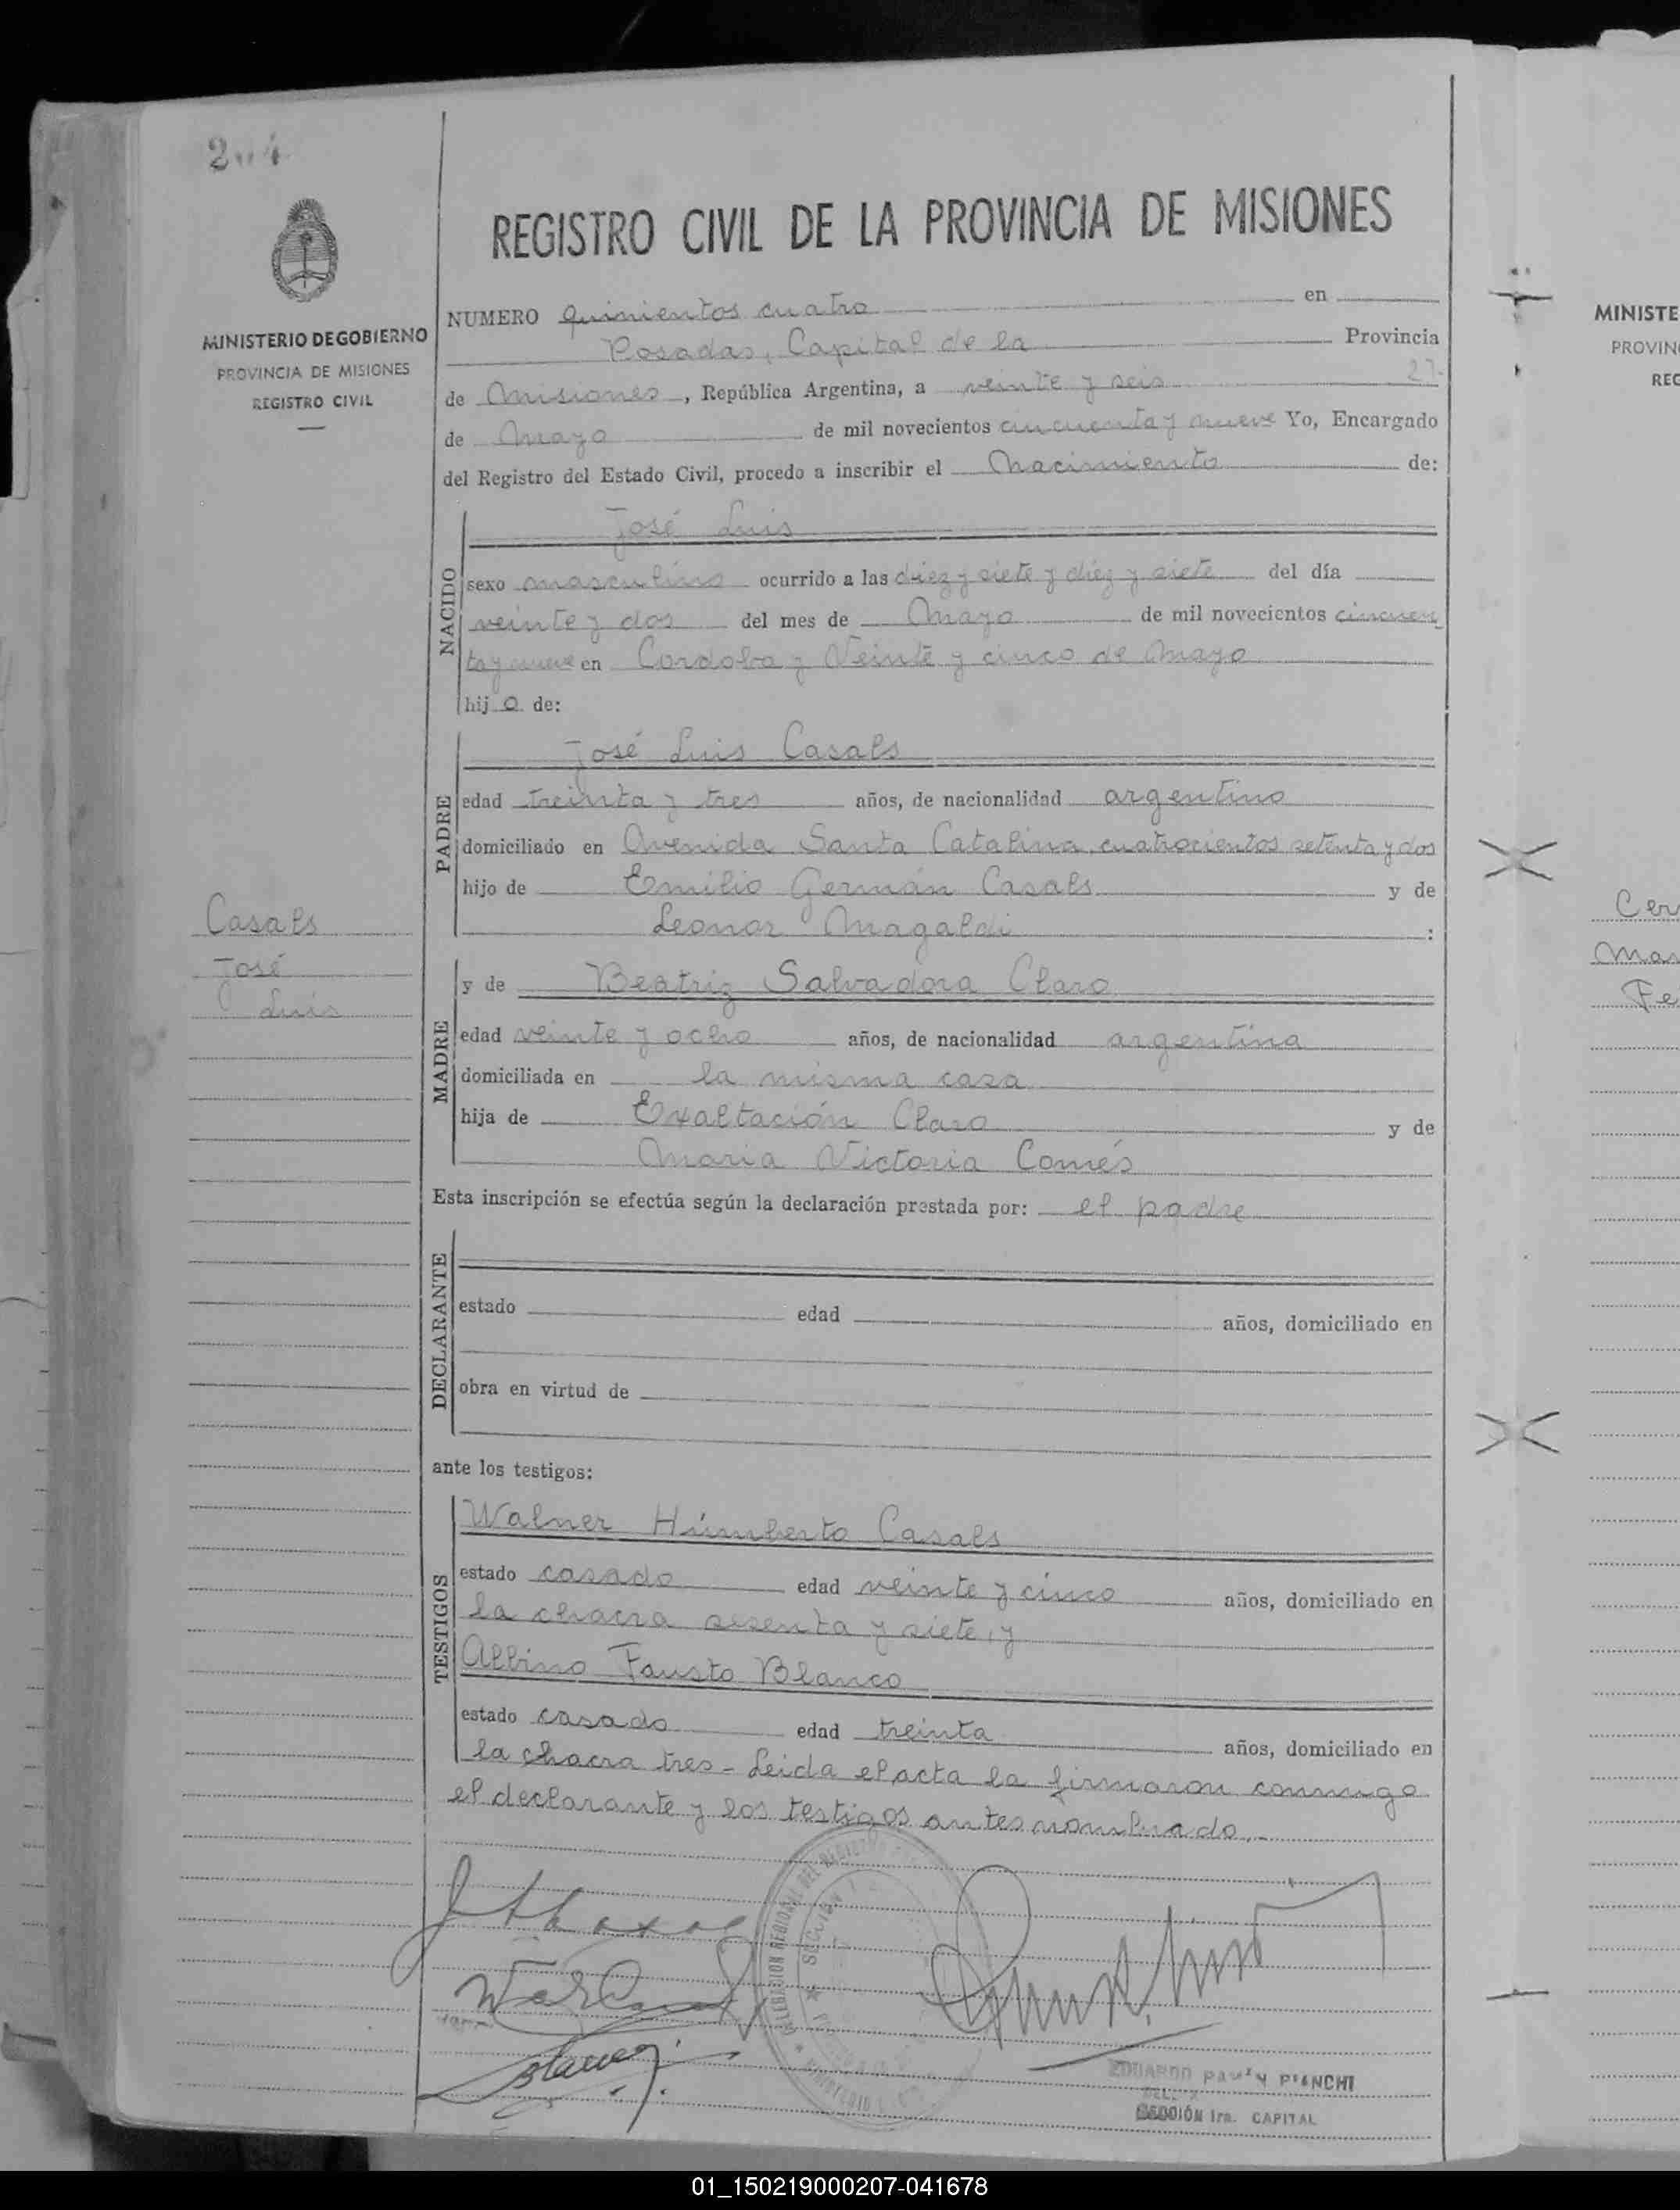 204
REGISTRO CIVIL DE LA PROVINCIA DE MISIONES
MINISTERIO DE GOBIERNO
PROVINCIA DE MISIONES
REGISTRO CIVIL
NUMERO quinientos cuatro en
Posadas, Capital de la Provincia
de Misiones, República Argentina, a veinte y seis 27
de Mayo de mil novecientos cincuenta y nueve Yo, Encargado
del Registro del Estado Civil, procedo a inscribir el Nacimiento de:
NACIDO
José Luis
sexo masculino ocurrido a las diez y siete y diez y siete del día
veinte y dos del mes de Mayo de mil novecientos cincuen
ta y nueve en Cordoba y Veinte y cinco de Mayo
hij o de:
PADRE
José Luis Casals
edad treinta y tres años, de nacionalidad argentino
domiciliado en Avenida Santa Catalina, cuatrocientos setenta y dos
hijo de Emilio Germán Casals y de
Leonor Magaldi :
Casals
José
Luis
MADRE
y de Beatriz Salvadora Claro
edad veinte y ocho años, de nacionalidad argentina
domiciliada en la misma casa
hija de Exaltación Claro y de
Maria Victoria Comés
Esta inscripción se efectúa según la declaración prestada por: el padre
DECLARANTE
estado edad años, domiciliado en
obra en virtud de
ante los testigos:
TESTIGOS
Walner Húmberto Casals
estado casado edad veinte y cinco años, domiciliado en
la chacra sesenta y siete, y
Albino Fausto Blanco
estado casado edad treinta años, domiciliado en
la chacra tres - Leida el acta la firmaron conmigo
el declarante y los testigos antes nombrado.-
EDUARDO PIANCHI
SECCIÓN 1ra. CAPITAL
MINISTE
PROVIN
REG
Cer
Mar
Fe
01_150219000207-041678